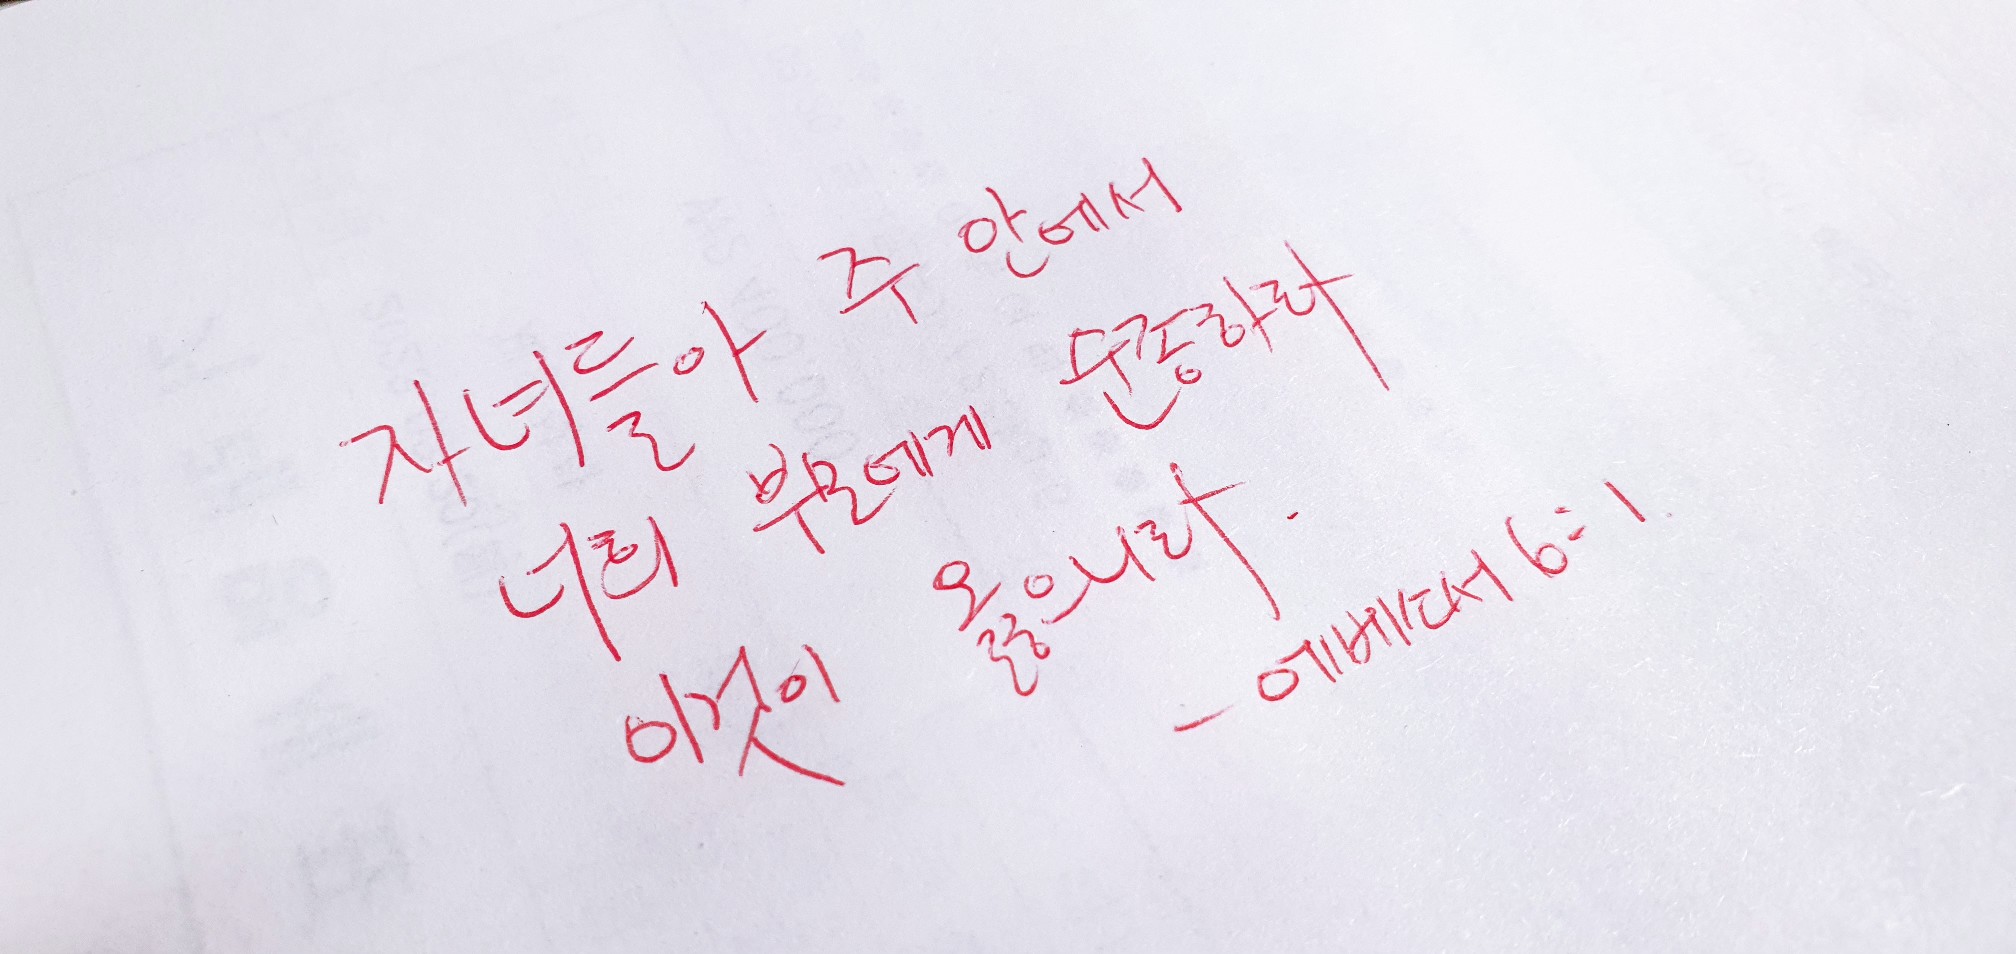 자녀들아 주 안에서
너희 부모에게 순종하라
이것이 옳으니라.
- 에베소서 6:1.